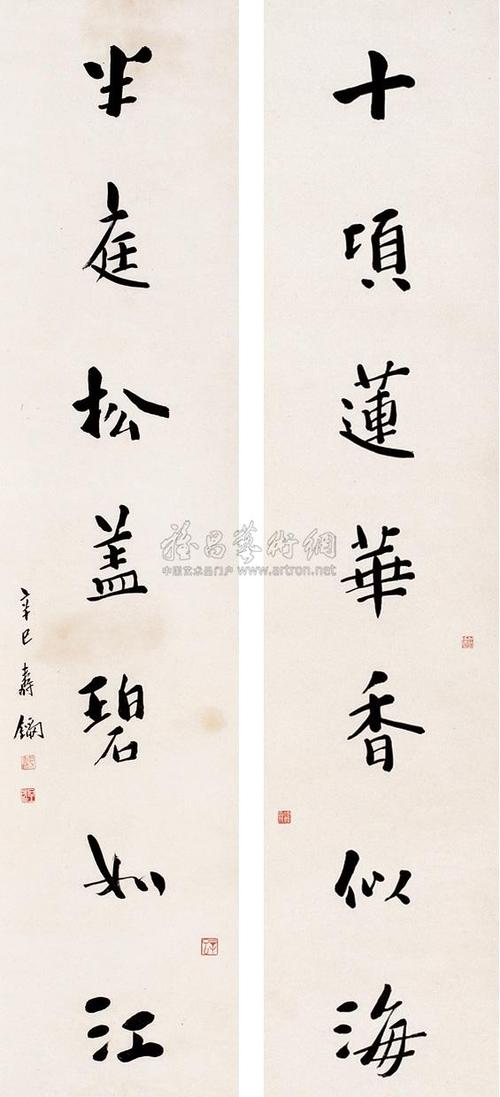 十頃蓮華香似海
半庭松盖碧如江
辛巳 壽鏞
雅昌藝術網
中国艺术品门户 www.artron.net